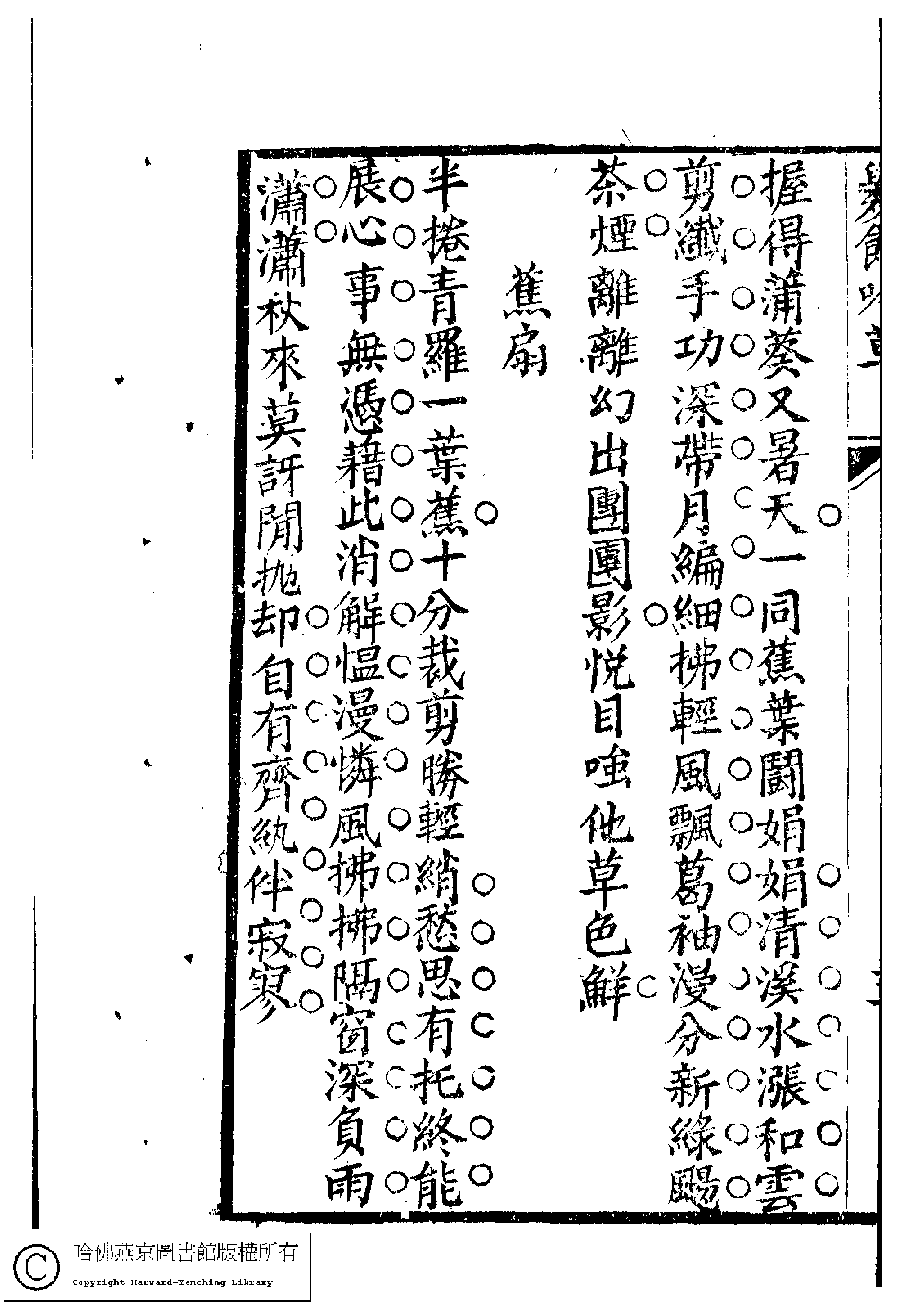 爨餘吟草
握得蒲葵又暑天一同蕉葉鬪娟娟清溪水漲和雲
剪纖手功深帶月編細拂輕風飄葛袖漫分新綠颺
茶煙離離幻出團團影悅目嗤他草色鮮
蕉扇
半捲青羅一葉蕉十分裁剪勝輕綃愁思有托終能
展心事無憑藉此消解慍漫憐風拂拂隔窗深負雨
瀟瀟秋來莫訝閒拋却自有齊紈伴寂寥
哈佛燕京圖書館版權所有
Copyright Harvard-Yenching Library